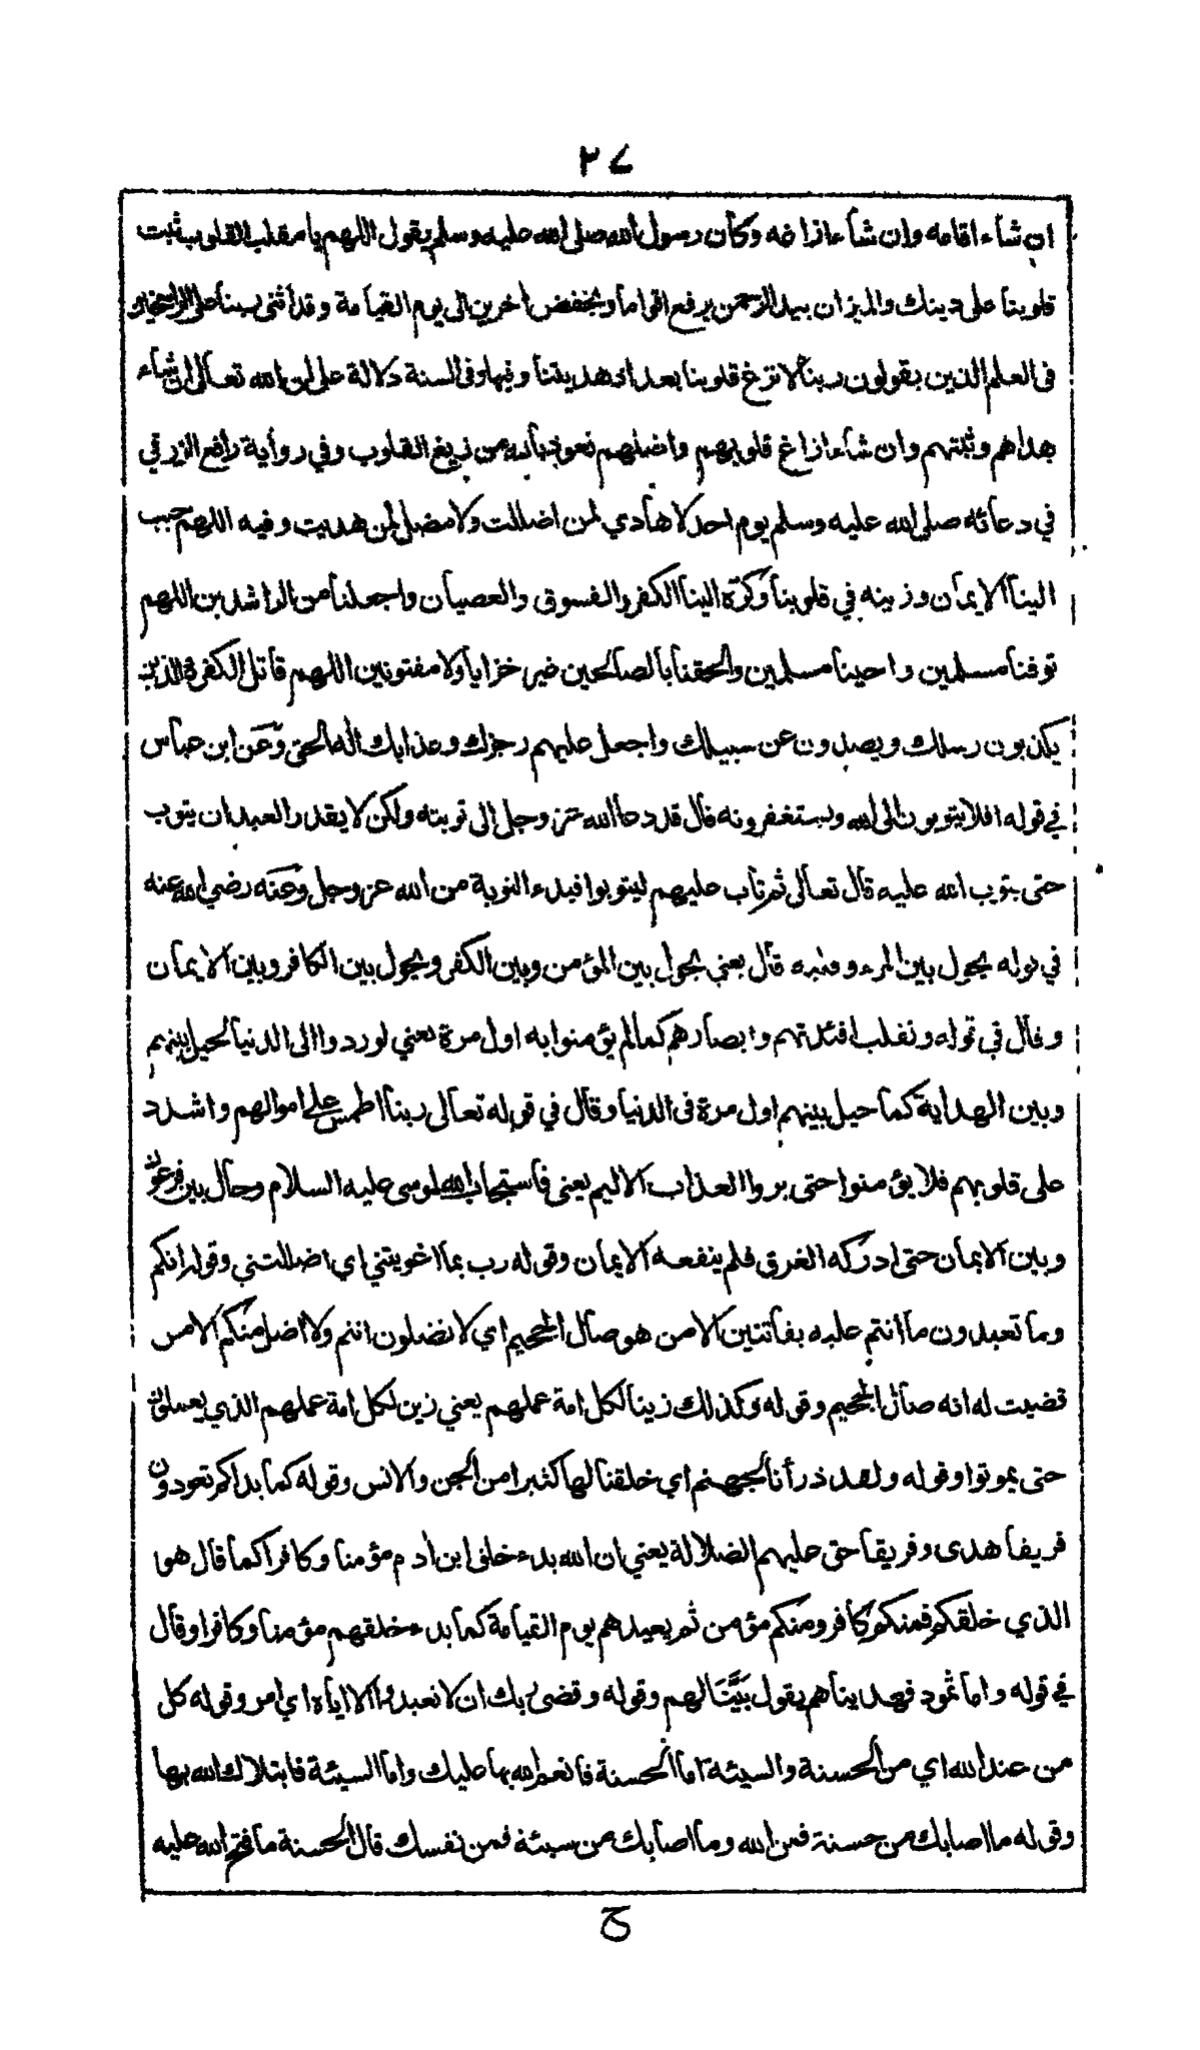 ٣٤
ان شاء اقامه وان شاء ازاغه وكان رسول الله صلى الله عليه وسلم يقول اللهم يا مقلب القلوب ثبت
قلوبنا على دينك والميزان بيد الرحمن يرفع اقواما ويخفض اخرين الى يوم القيامة وقد اثنى ربنا على الراسخين
فى العلم الذين يقولون ربنا لا تزغ قلوبنا بعد اذ هديتنا وفيها وفى السنة دلالة على ان الله تعالى ان شاء
هداهم وثبتهم وان شاء ازاغ قلوبهم واضلهم نعوذ بالله من زيغ القلوب وفي رواية رافع الزرقي
في دعائه صلى الله عليه وسلم يوم احد لا هادي لمن اضللت ولا مضل لمن هديت وفيه اللهم حبب
الينا الايمان وزينه في قلوبنا وكره الينا الكفر والفسوق والعصيان واجعلنا من الراشدين اللهم
توفنا مسلمين واحينا مسلمين والحقنا بالصالحين غير خزايا ولا مفتونين اللهم قاتل الكفرة الذين
يكذبون رسلك ويصدون عن سبيلك واجعل عليهم رجزك وعذابك اله الحق وعن ابن عباس
في قوله افلا يتوبون الى الله ويستغفرونه قال قد دعا الله عز وجل الى توبته ولكن لا يقدر العبد ان يتوب
حتى يتوب الله عليه قال تعالى ثم تاب عليهم ليتوبوا فبدء التوبة من الله عز وجل وعنه رضي الله عنه
في قوله يحول بين المرء وقلبه قال يعني يحول بين المؤمن وبين الكفر ويحول بين الكافر وبين الايمان
وقال في قوله ونقلب افئدتهم وابصارهم كما لم يؤمنوا به اول مرة يعني لو ردوا الى الدنيا لحيل بينهم
وبين الهداية كما حيل بينهم اول مرة فى الدنيا وقال في قوله تعالى ربنا اطمس على اموالهم واشدد
على قلوبهم فلا يؤمنوا حتى يروا العذاب الاليم يعني فاستجاب الله لموسى عليه السلام وحال بين فرعون
وبين الايمان حتى ادركه الغرق فلم ينفعه الايمان وقوله رب بما اغويتني اي اضللتني وقوله انكم
وما تعبدون ما انتم عليه بفاتنين الا من هو صال الجحيم اي لا تضلون انتم ولا اضل منكم الا من
قضيت له انه صال الجحيم وقوله وكذلك زينا لكل امة عملهم يعني زين لكل امة عملهم الذي يعملون
حتى يموتوا وقوله ولقد ذرأنا لجهنم اي خلقنا لها كثيرا من الجن والانس وقوله كما بداكم تعودون
فريقا هدى وفريقا حق عليهم الضلالة يعني ان الله بدء خلق ابن ادم مؤمنا وكافرا كما قال هو
الذي خلقكم فمنكم كافر ومنكم مؤمن ثم يعيدهم يوم القيامة كما بدء خلقهم مؤمنا وكافرا وقال
في قوله واما ثمود فهديناهم يقول بيّنّا لهم وقوله وقضى ربك ان لا تعبدوا الا اياه اي امر وقوله كل
من عند الله اي من الحسنة والسيئة اما الحسنة فانعم الله بها عليك واما السيئة فابتلاك الله بها
وقوله ما اصابك من حسنة فمن الله وما اصابك من سيئة فمن نفسك قال الحسنة ما فتح الله عليه
ح